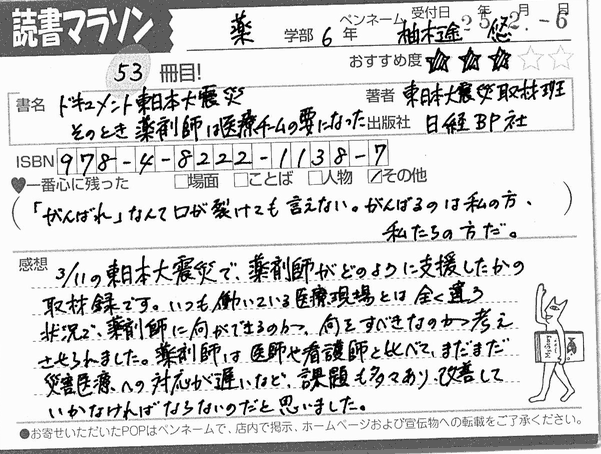 読書マラソン
薬 学部 6 年 ペンネーム 柚木 悠 受付日 25年 2月 -6日
53 冊目! おすすめ度 ★★★☆☆
書名 ドキュメント東日本大震災 著者 東日本大震災取材班
そのとき薬剤師は医療チームの要になった 出版社 日経BP社
ISBN 978-4-8222-1138-7
♥一番心に残った □場面 □ことば □人物 ☑その他
(「がんばれ」なんて口が裂けても言えない。がんばるのは私の方、
私たちの方だ。)
感想 3/11の東日本大震災で、薬剤師がどのように支援したかの
取材録です。いつも働いている医療現場とは全く違う
状況で、薬剤師に何ができるのか、何をすべきなのか考え
させられました。薬剤師は医師や看護師と比べて、まだまだ
災害医療への対応が遅いなど、課題も多々あり、改善して
いかなければならないのだと思いました。
●お寄せいただいたPOPはペンネームで、店内で掲示、ホームページおよび宣伝物への転載をご了承ください。